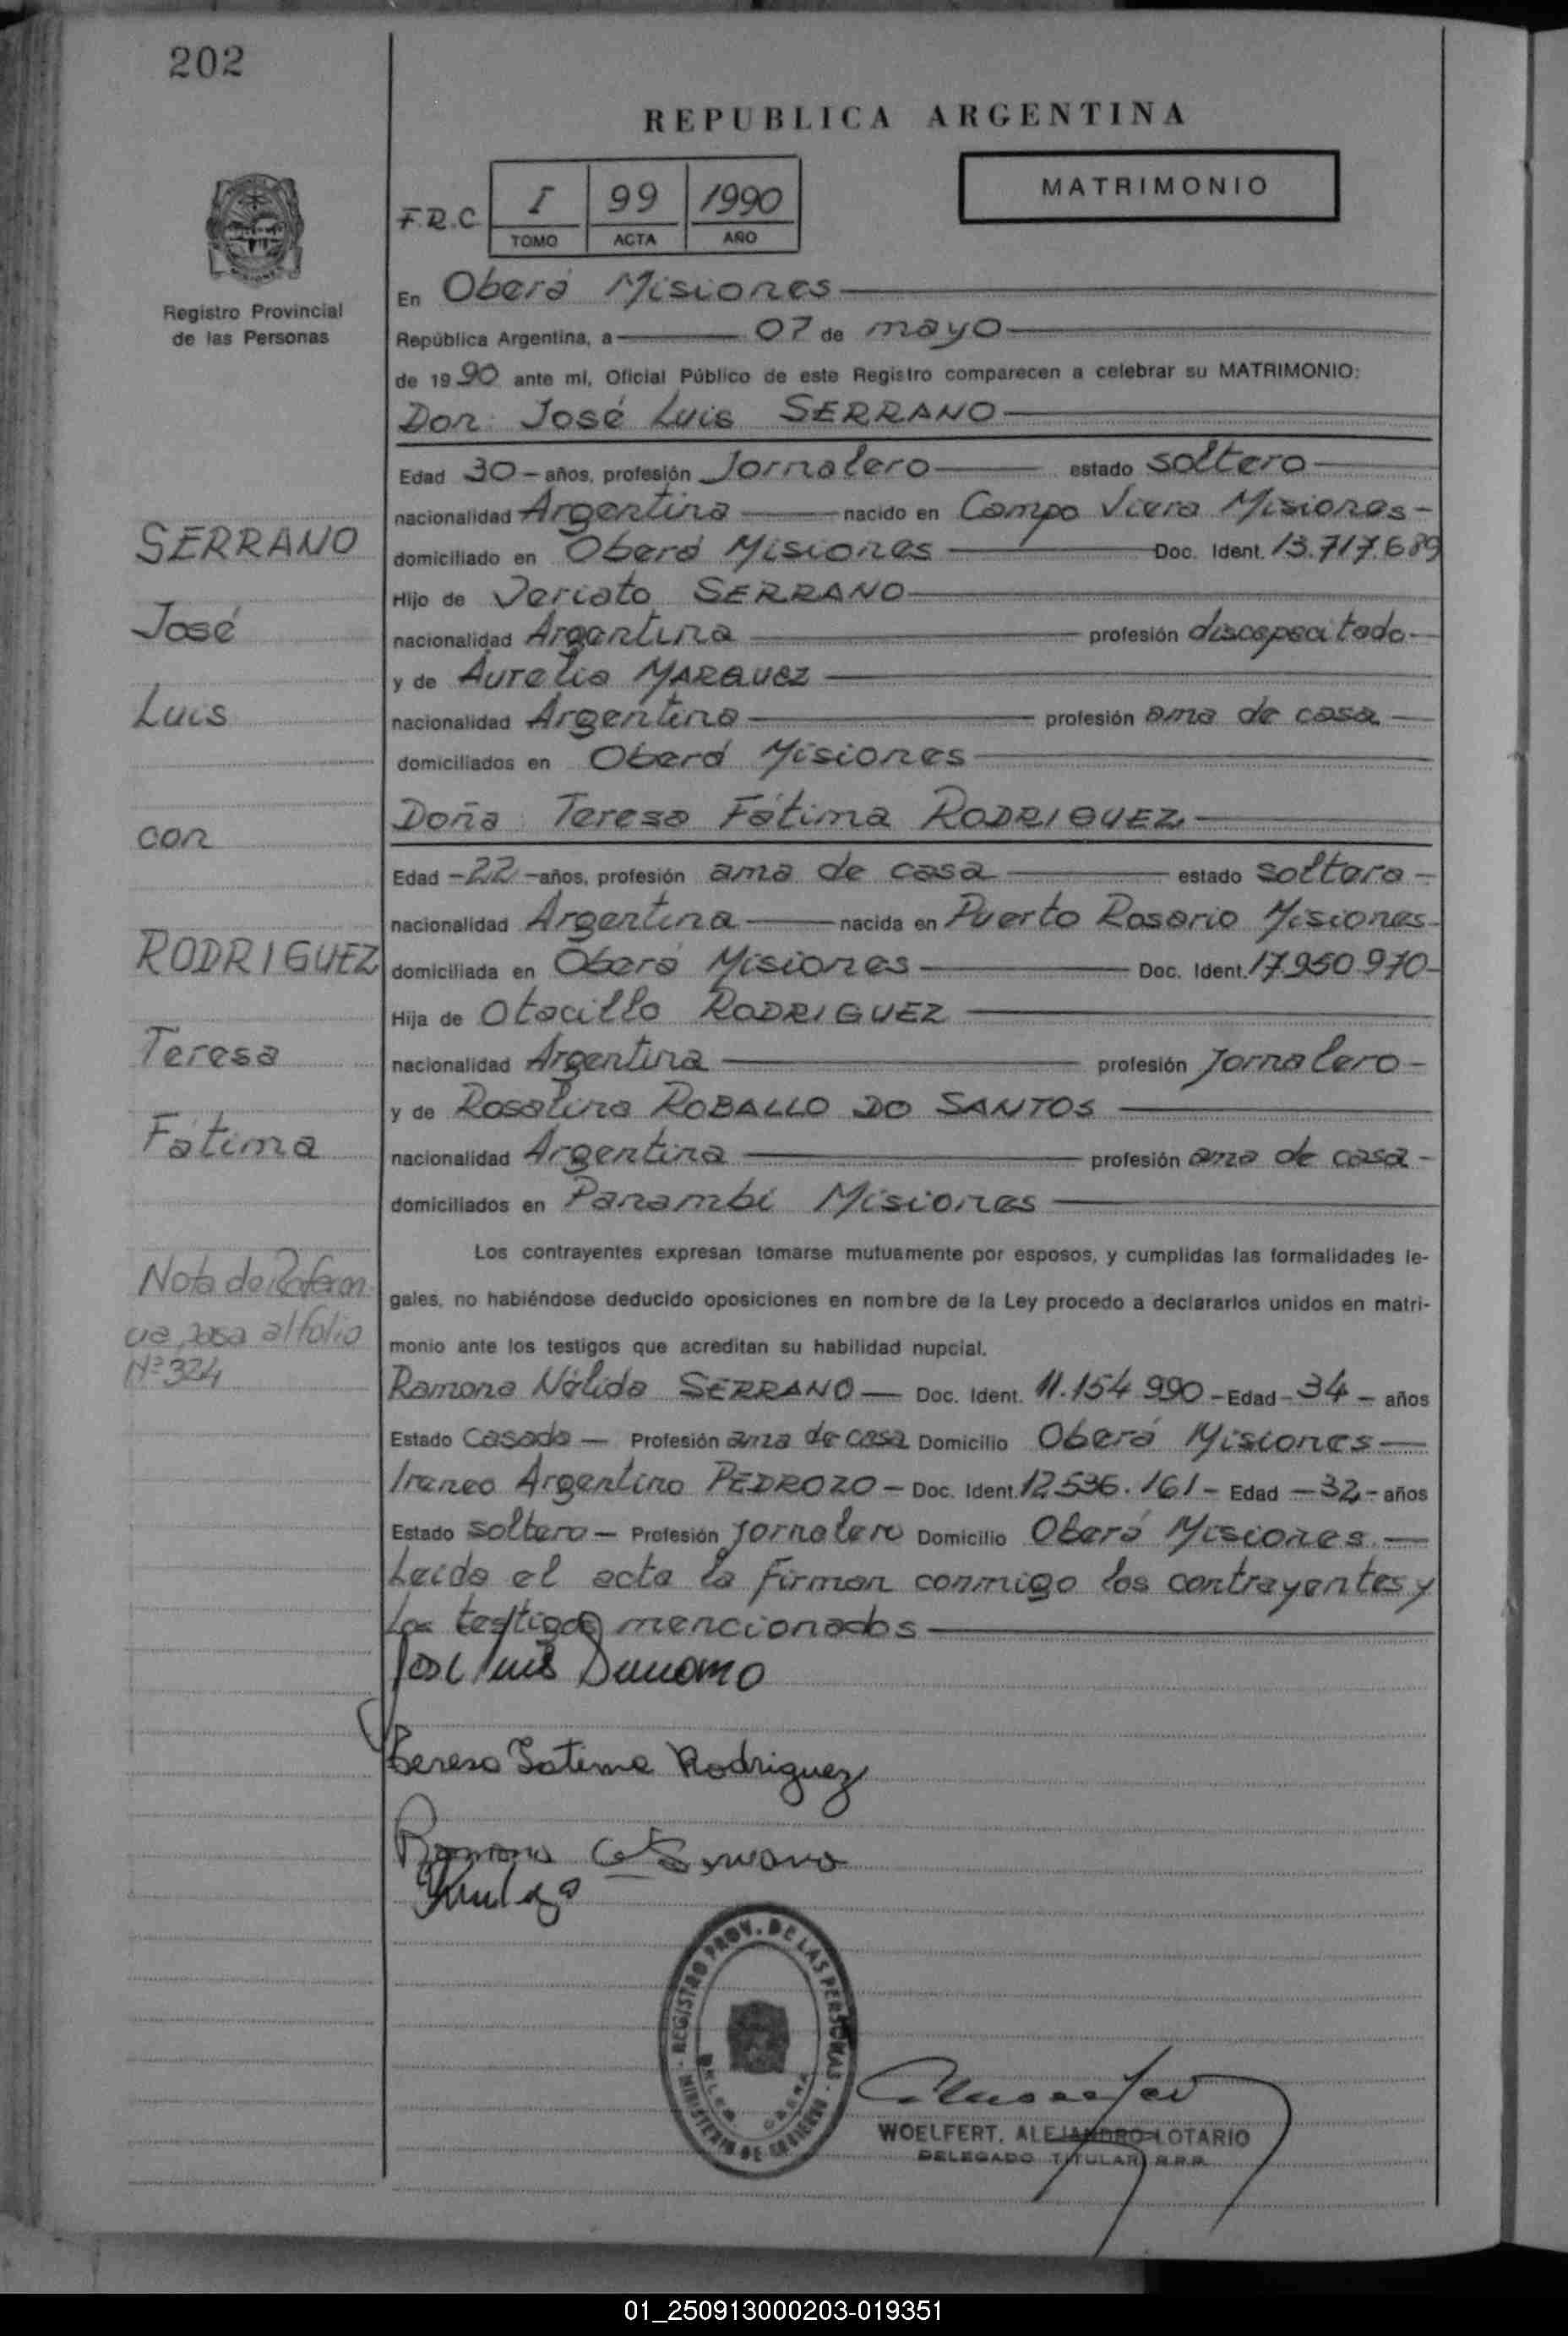 202
REPUBLICA ARGENTINA
MATRIMONIO
F.R.C. I 99 1990
TOMO ACTA AÑO
Registro Provincial
de las Personas
En Oberá Misiones
República Argentina, a 07 de mayo
de 1990 ante mí, Oficial Público de este Registro comparecen a celebrar su MATRIMONIO:
Don: José Luis SERRANO
Edad 30 - años, profesión Jornalero estado soltero
nacionalidad Argentina nacido en Campo Viera Misiones -
domiciliado en Oberá Misiones Doc. Ident. 13.717.689
Hijo de SERRANO
nacionalidad Argentina profesión discapacitado
y de Aurelia MARQUEZ
nacionalidad Argentina profesión ama de casa
domiciliados en Oberá Misiones
Doña: Teresa Fátima RODRIGUEZ
Edad - 22 - años, profesión ama de casa estado soltera -
nacionalidad Argentina nacida en Puerto Rosario Misiones
domiciliada en Oberá Misiones Doc. Ident. 17.950.970
Hija de Otacillo RODRIGUEZ
nacionalidad Argentina profesión Jornalero -
y de Rosalina ROBALLO DO SANTOS
nacionalidad Argentina profesión ama de casa -
domiciliados en Panambí Misiones
Los contrayentes expresan tomarse mutuamente por esposos, y cumplidas las formalidades le-
gales, no habiéndose deducido oposiciones en nombre de la Ley procedo a declararlos unidos en matri-
monio ante los testigos que acreditan su habilidad nupcial.
Ramona Nélida SERRANO - Doc. Ident. 11.154.990 - Edad - 34 - años
Estado Casada - Profesión ama de casa Domicilio Oberá Misiones
Ireneo Argentino PEDROZO - Doc. Ident. 12.536.161 - Edad - 32 - años
Estado soltero - Profesión Jornalero Domicilio Oberá Misiones
Leída el acta la firman conmigo los contrayentes y
los testigos mencionados
José Luis
Teresa Fatima Rodriguez
Ramona
SERRANO
José
Luis
con
RODRIGUEZ
Teresa
Fátima
Nota de Referen-
cia pasa al folio
Nº 324
REGISTRO PROV. DE LAS PERSONAS
MINISTERIO DE GOBIERNO
WOELFERT, ALEJANDRO LOTARIO
DELEGADO TITULAR R.P.P.
01_250913000203-019351